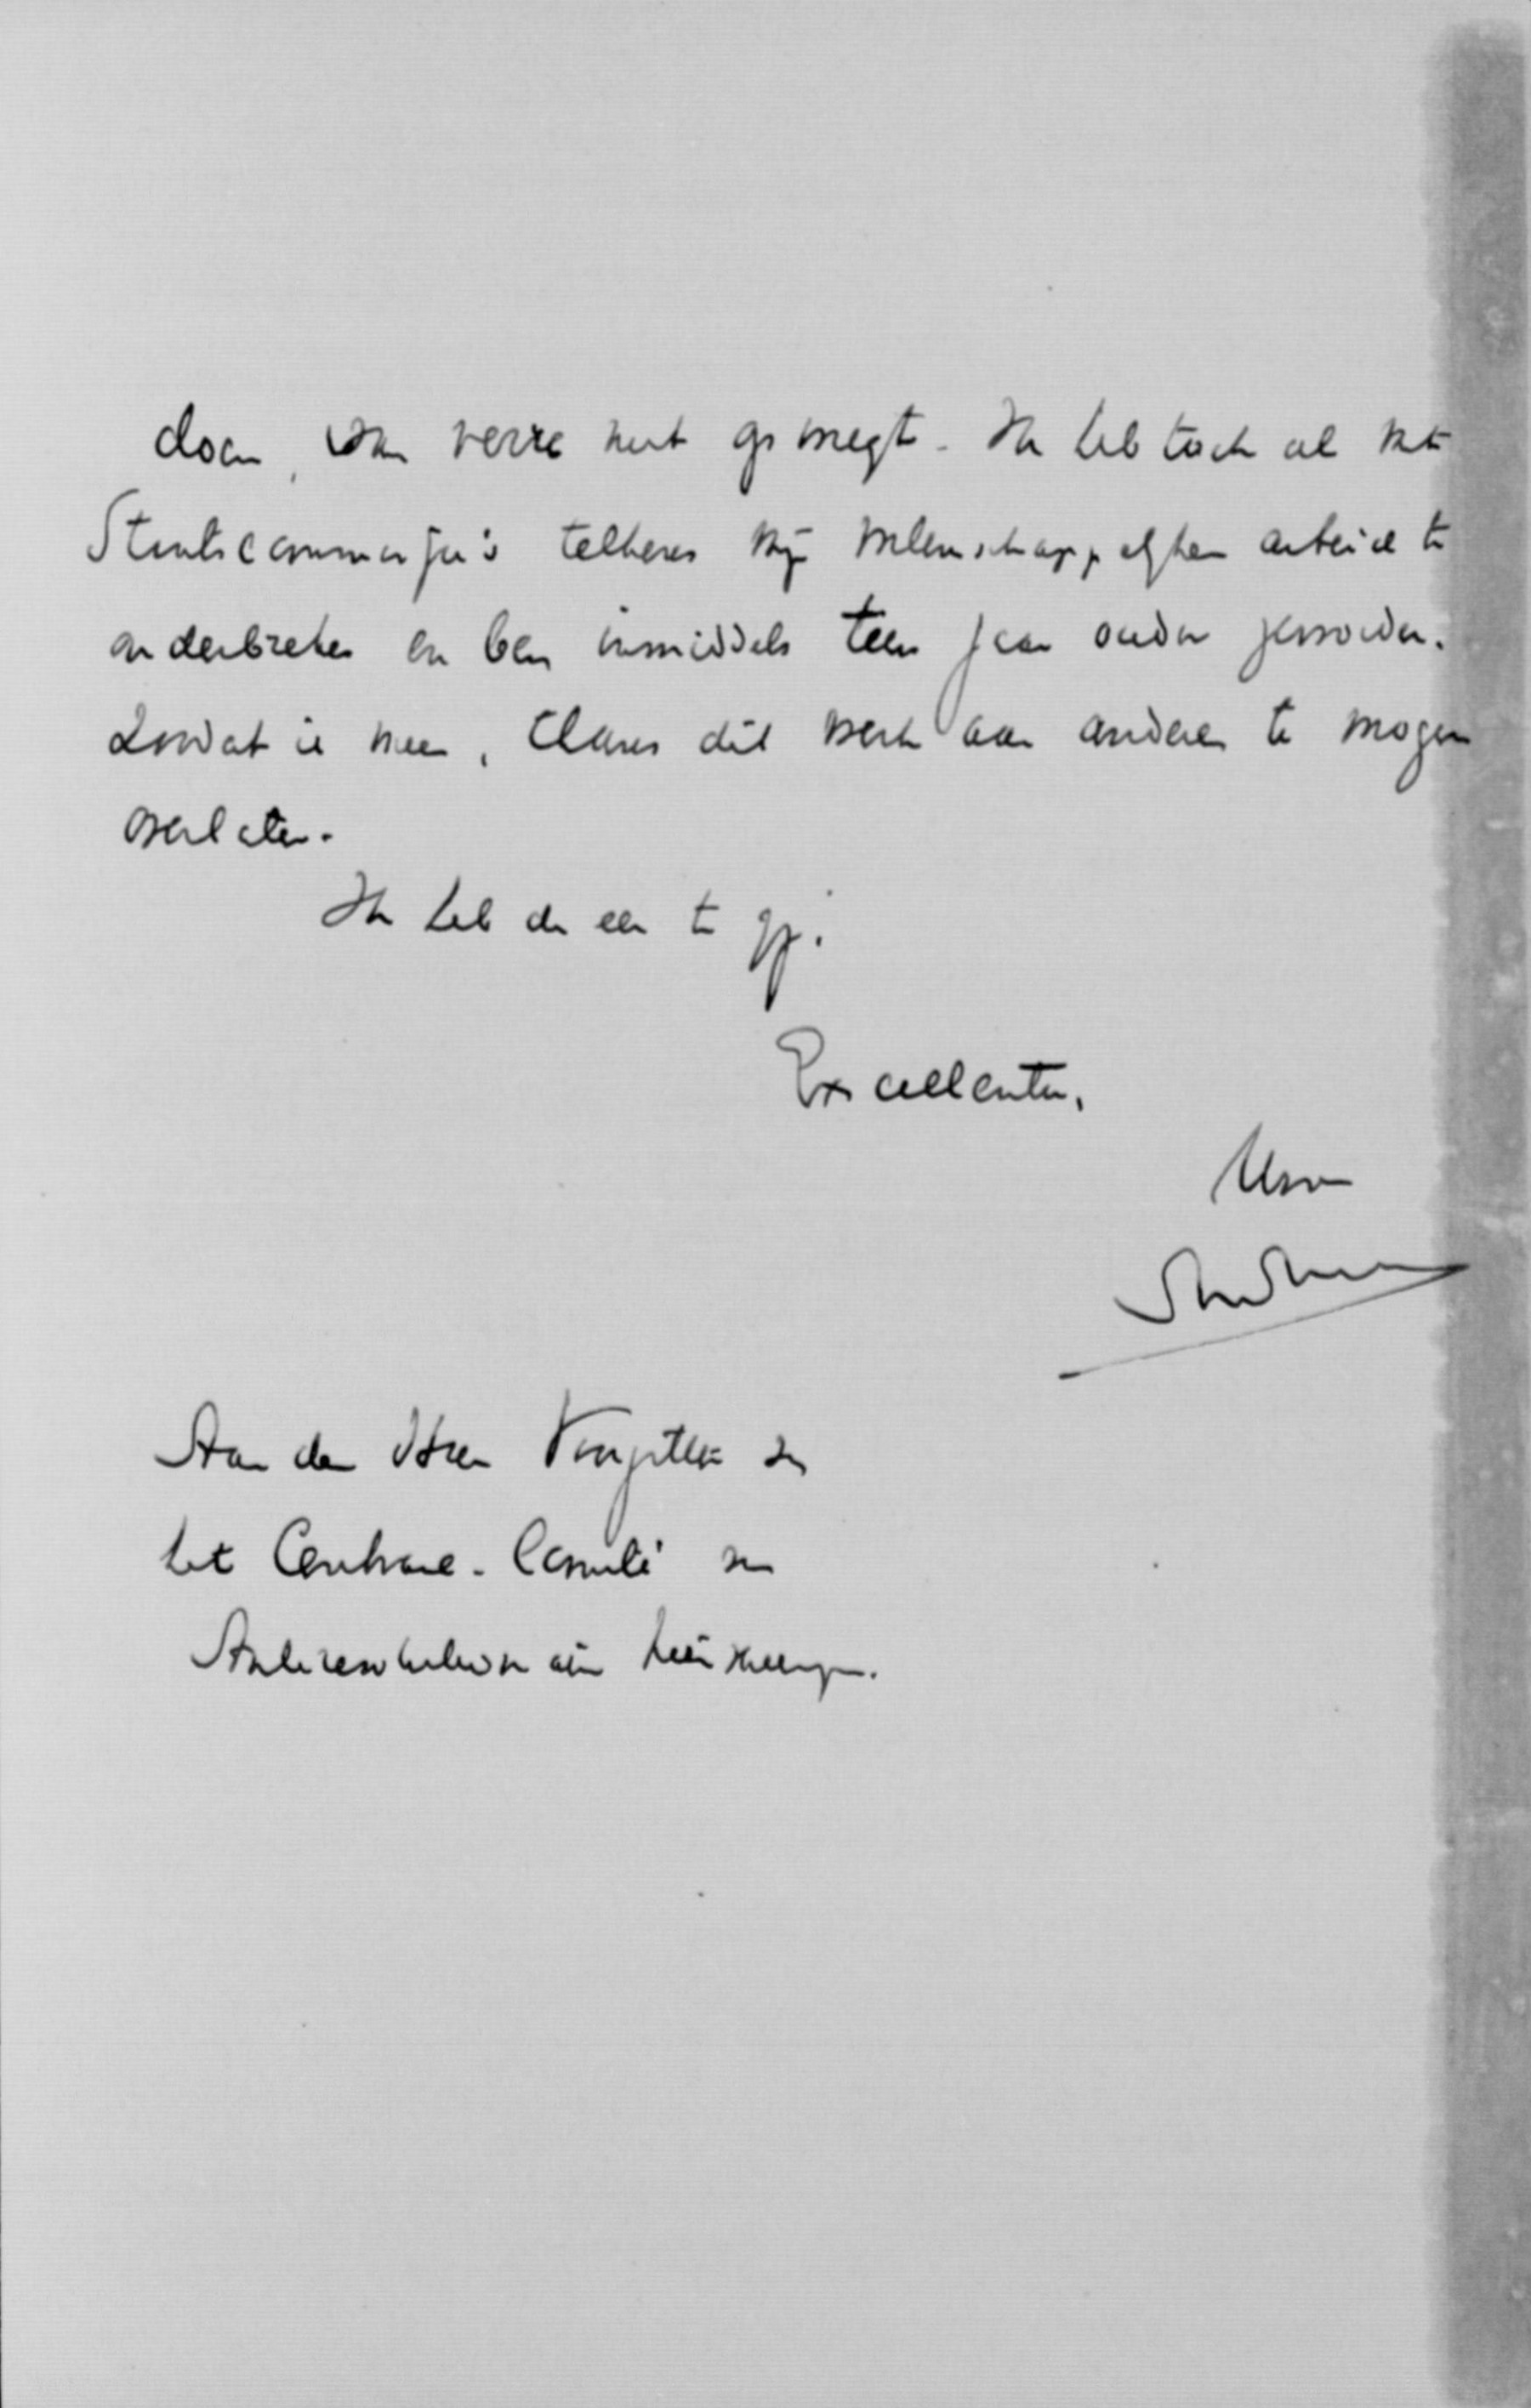 doen, van verre niet op weegt. Ik heb toch al met
Staatscommissie's telkens mijn wetenschappelijken arbeid te
onderbreken en ben inmiddels tien jaar ouder geworden.
Zoodat ik meen, thans dit werk aan anderen te mogen
overlaten.
Ik heb de eer te zijn
Excellentie,
Uw
Aan den Heer Voorzitter van
het Centraal-Comité van
Antirevolutionaire Kiesvereenigingen.